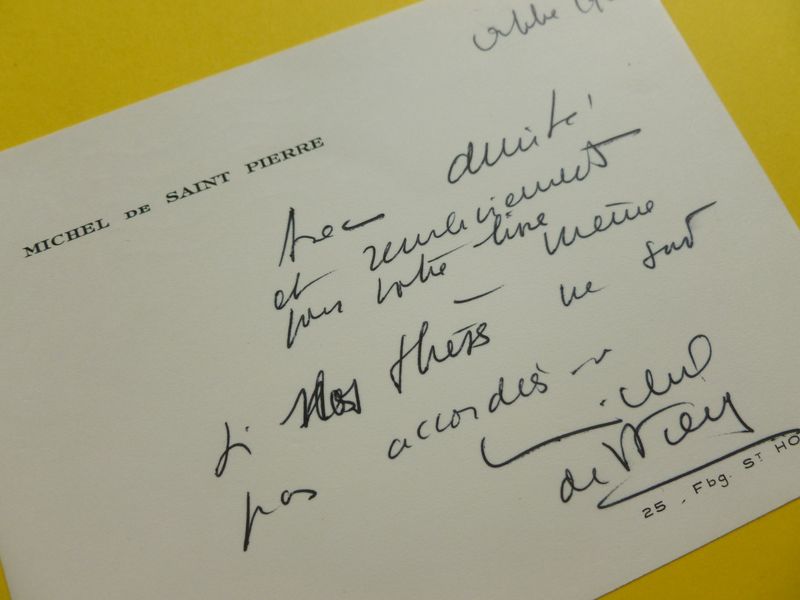 MICHEL DE SAINT PIERRE
Avec amitié
et remerciements
pour votre livre
— même
si nos thèses ne sont
pas accordées
Michel
de St Pierre
25, Fbg. ST HO